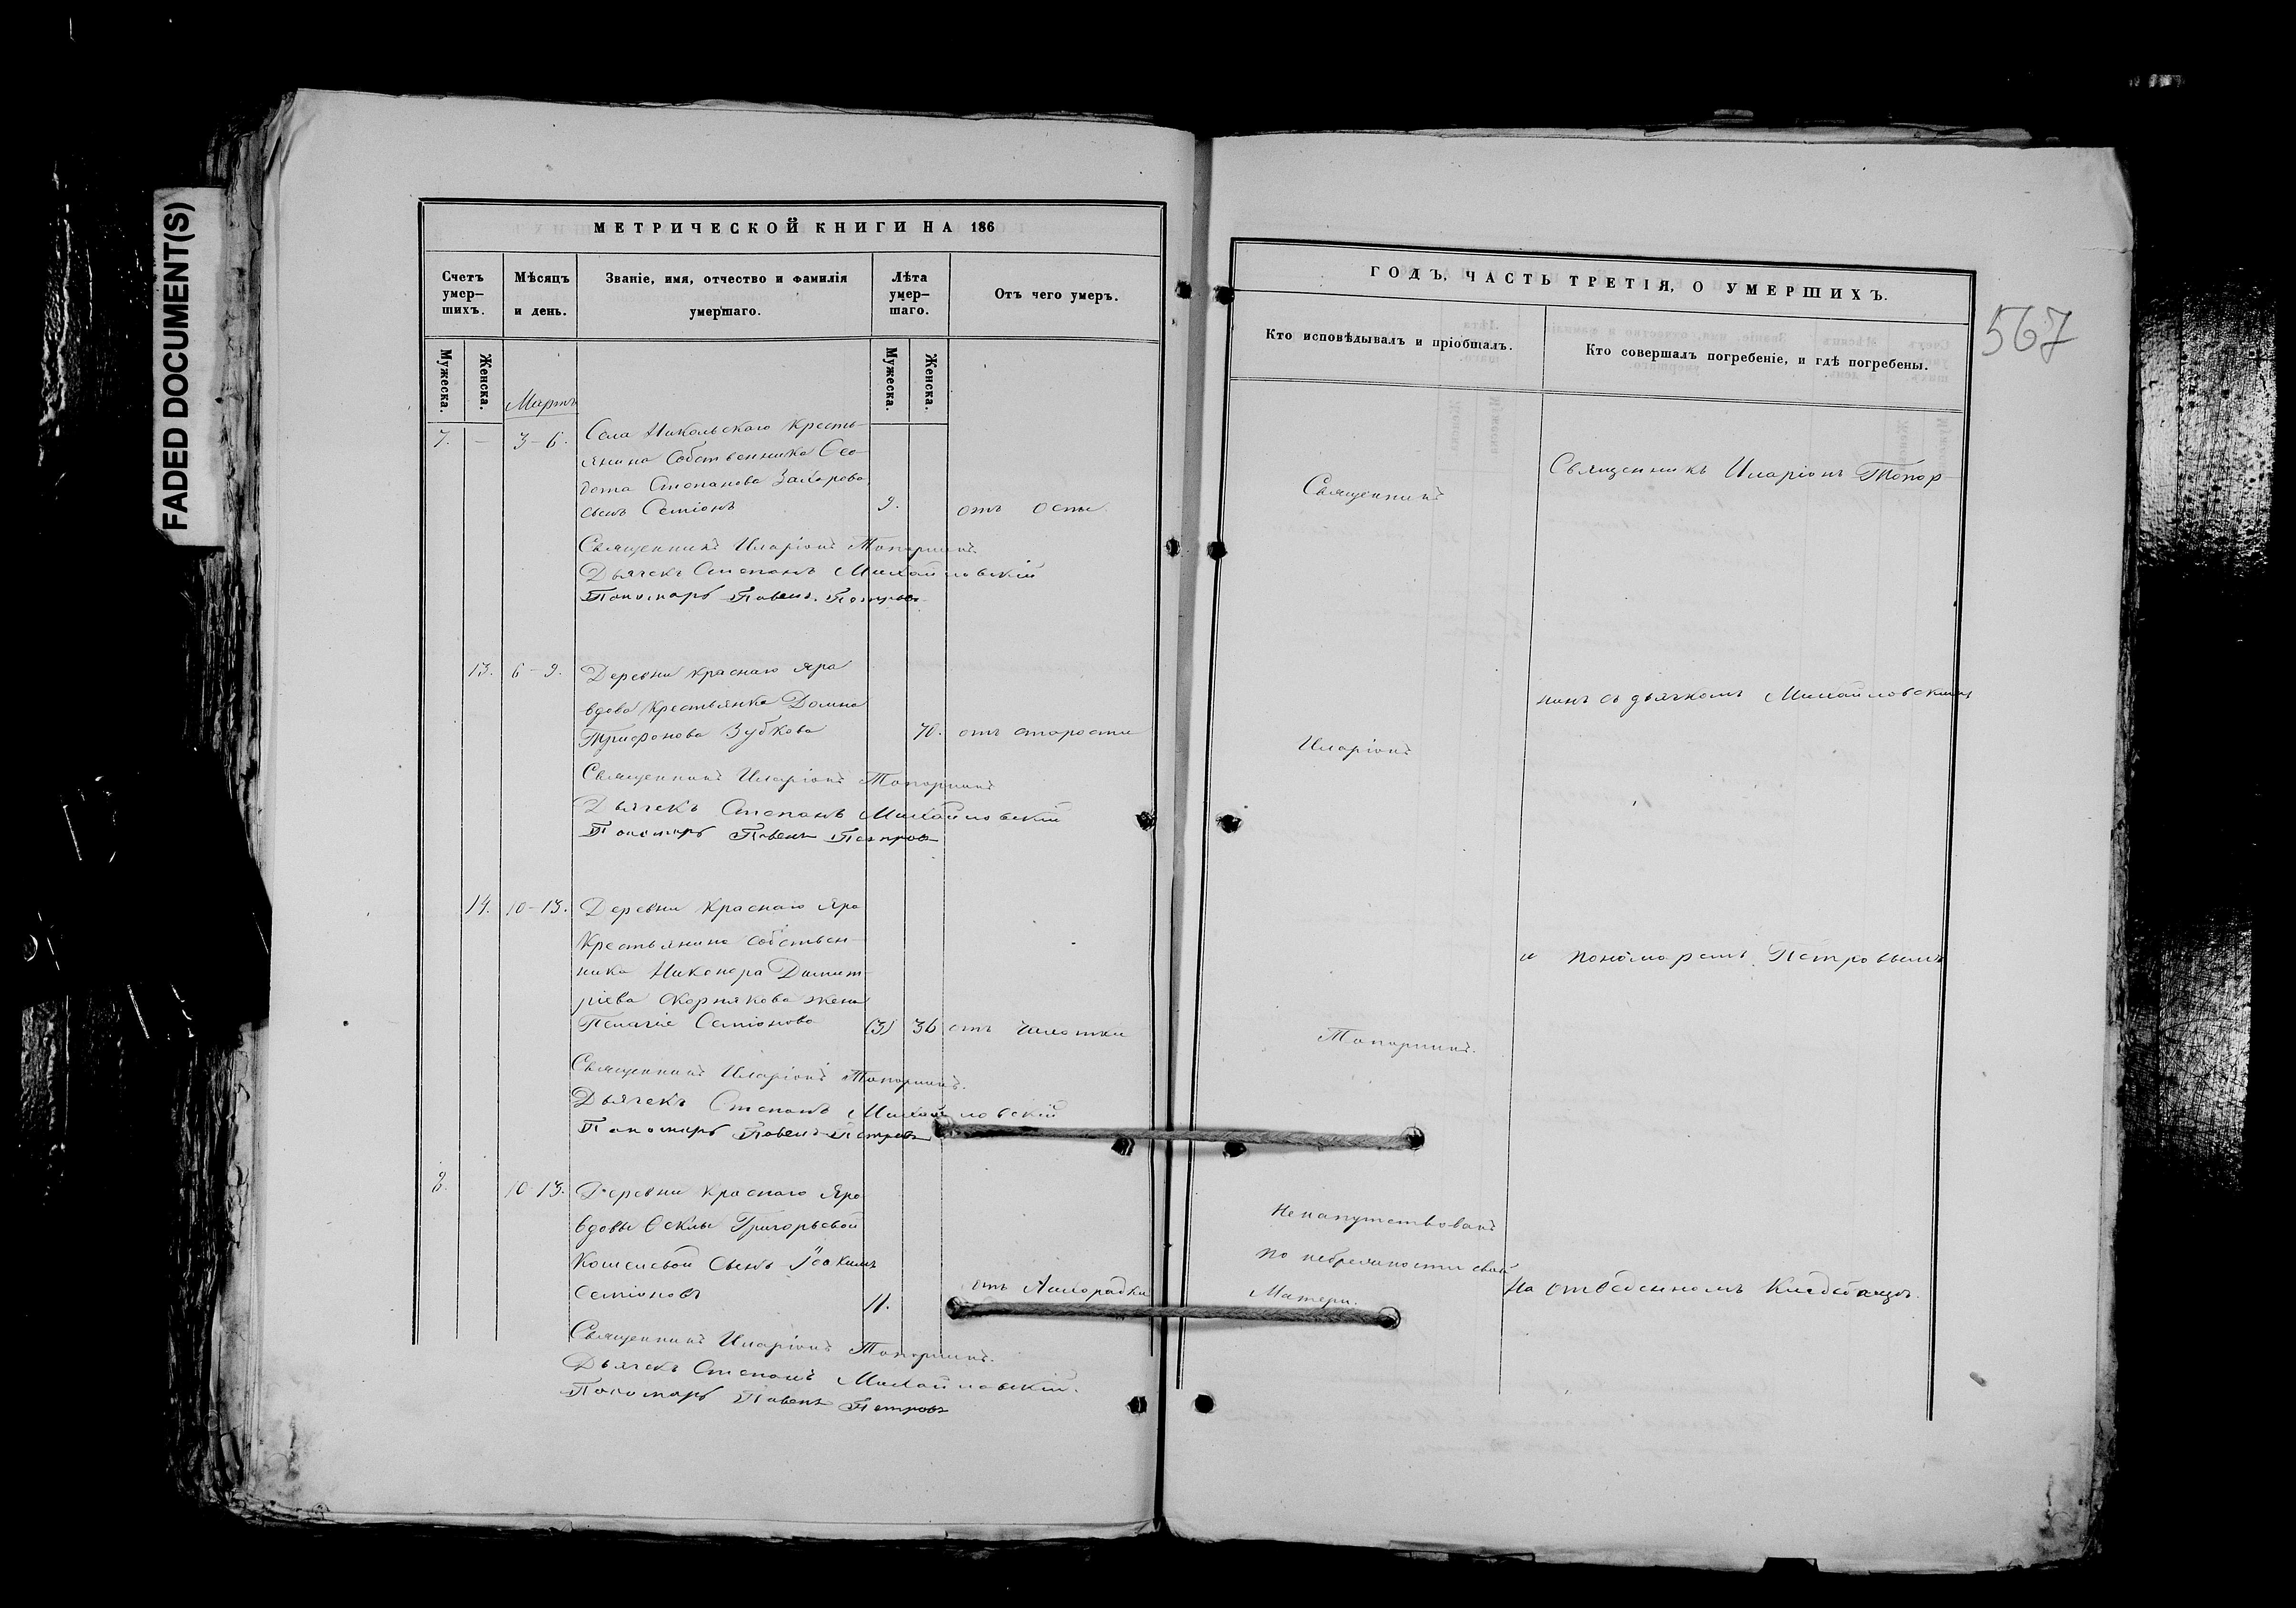 FADED DOCUMENT(S)
МЕТРИЧЕСКОЙ КНИГИ НА 186
Счетъ умер–шихъ.
Мѣсяцъ и день.
Званіе, имя, отчество и фамилія умершаго.
Лѣта умер–шаго.
Отъ чего умеръ.
Мужеска.
Женска.
Мужеска.
Женска.
Мартъ
7. – 3-6. Села Никольскаго кресть-
янина собственника Ѳео-
дота Степанова Захарова
сынъ Семіонъ 9. отъ оспы.
Священникъ Иларіонъ Топорнинъ.
Дьячекъ Степанъ Михайловскій
Пономарь Павелъ Петровъ
13. 6-9. Деревни Краснаго Яра
вдова крестьянка Домна
Трифонова Зубкова 70. отъ старости
Священникъ Иларіонъ Топорнинъ
Дьячекъ Степанъ Михайловскій
Пономарь Павелъ Петровъ
14. 10-13. Деревни Краснаго Яра
крестьянина собствен-
ника Никонора Димит-
ріева Корнякова жена
Пелагія Семіонова 36 отъ чахотки
Священникъ Иларіонъ Топорнинъ.
Дьячекъ Степанъ Михайловскій
Пономарь Павелъ Петровъ
8. 10-13. Деревни Краснаго Яра
вдовы Ѳеклы Григорьевой
Кошелевой сынъ Іоакимъ
Семіоновъ 11. отъ лихорадки
Священникъ Иларіонъ Топорнинъ.
Дьячекъ Степанъ Михайловскій.
Пономарь Павелъ Петровъ
ГОДЪ, ЧАСТЬ ТРЕТІЯ, О УМЕРШИХЪ.
567
Кто исповѣдывалъ и пріобщалъ.
Кто совершалъ погребеніе, и гдѣ погребены.
Священникъ
Священникъ Иларіонъ Топор-
нинъ съ дьячкомъ Михайловскимъ
Иларіонъ
и пономаремъ Петровымъ
Топорнинъ.
Не напутствованъ
по небрежности своей
матери.
на отведенномъ кладбищѣ.